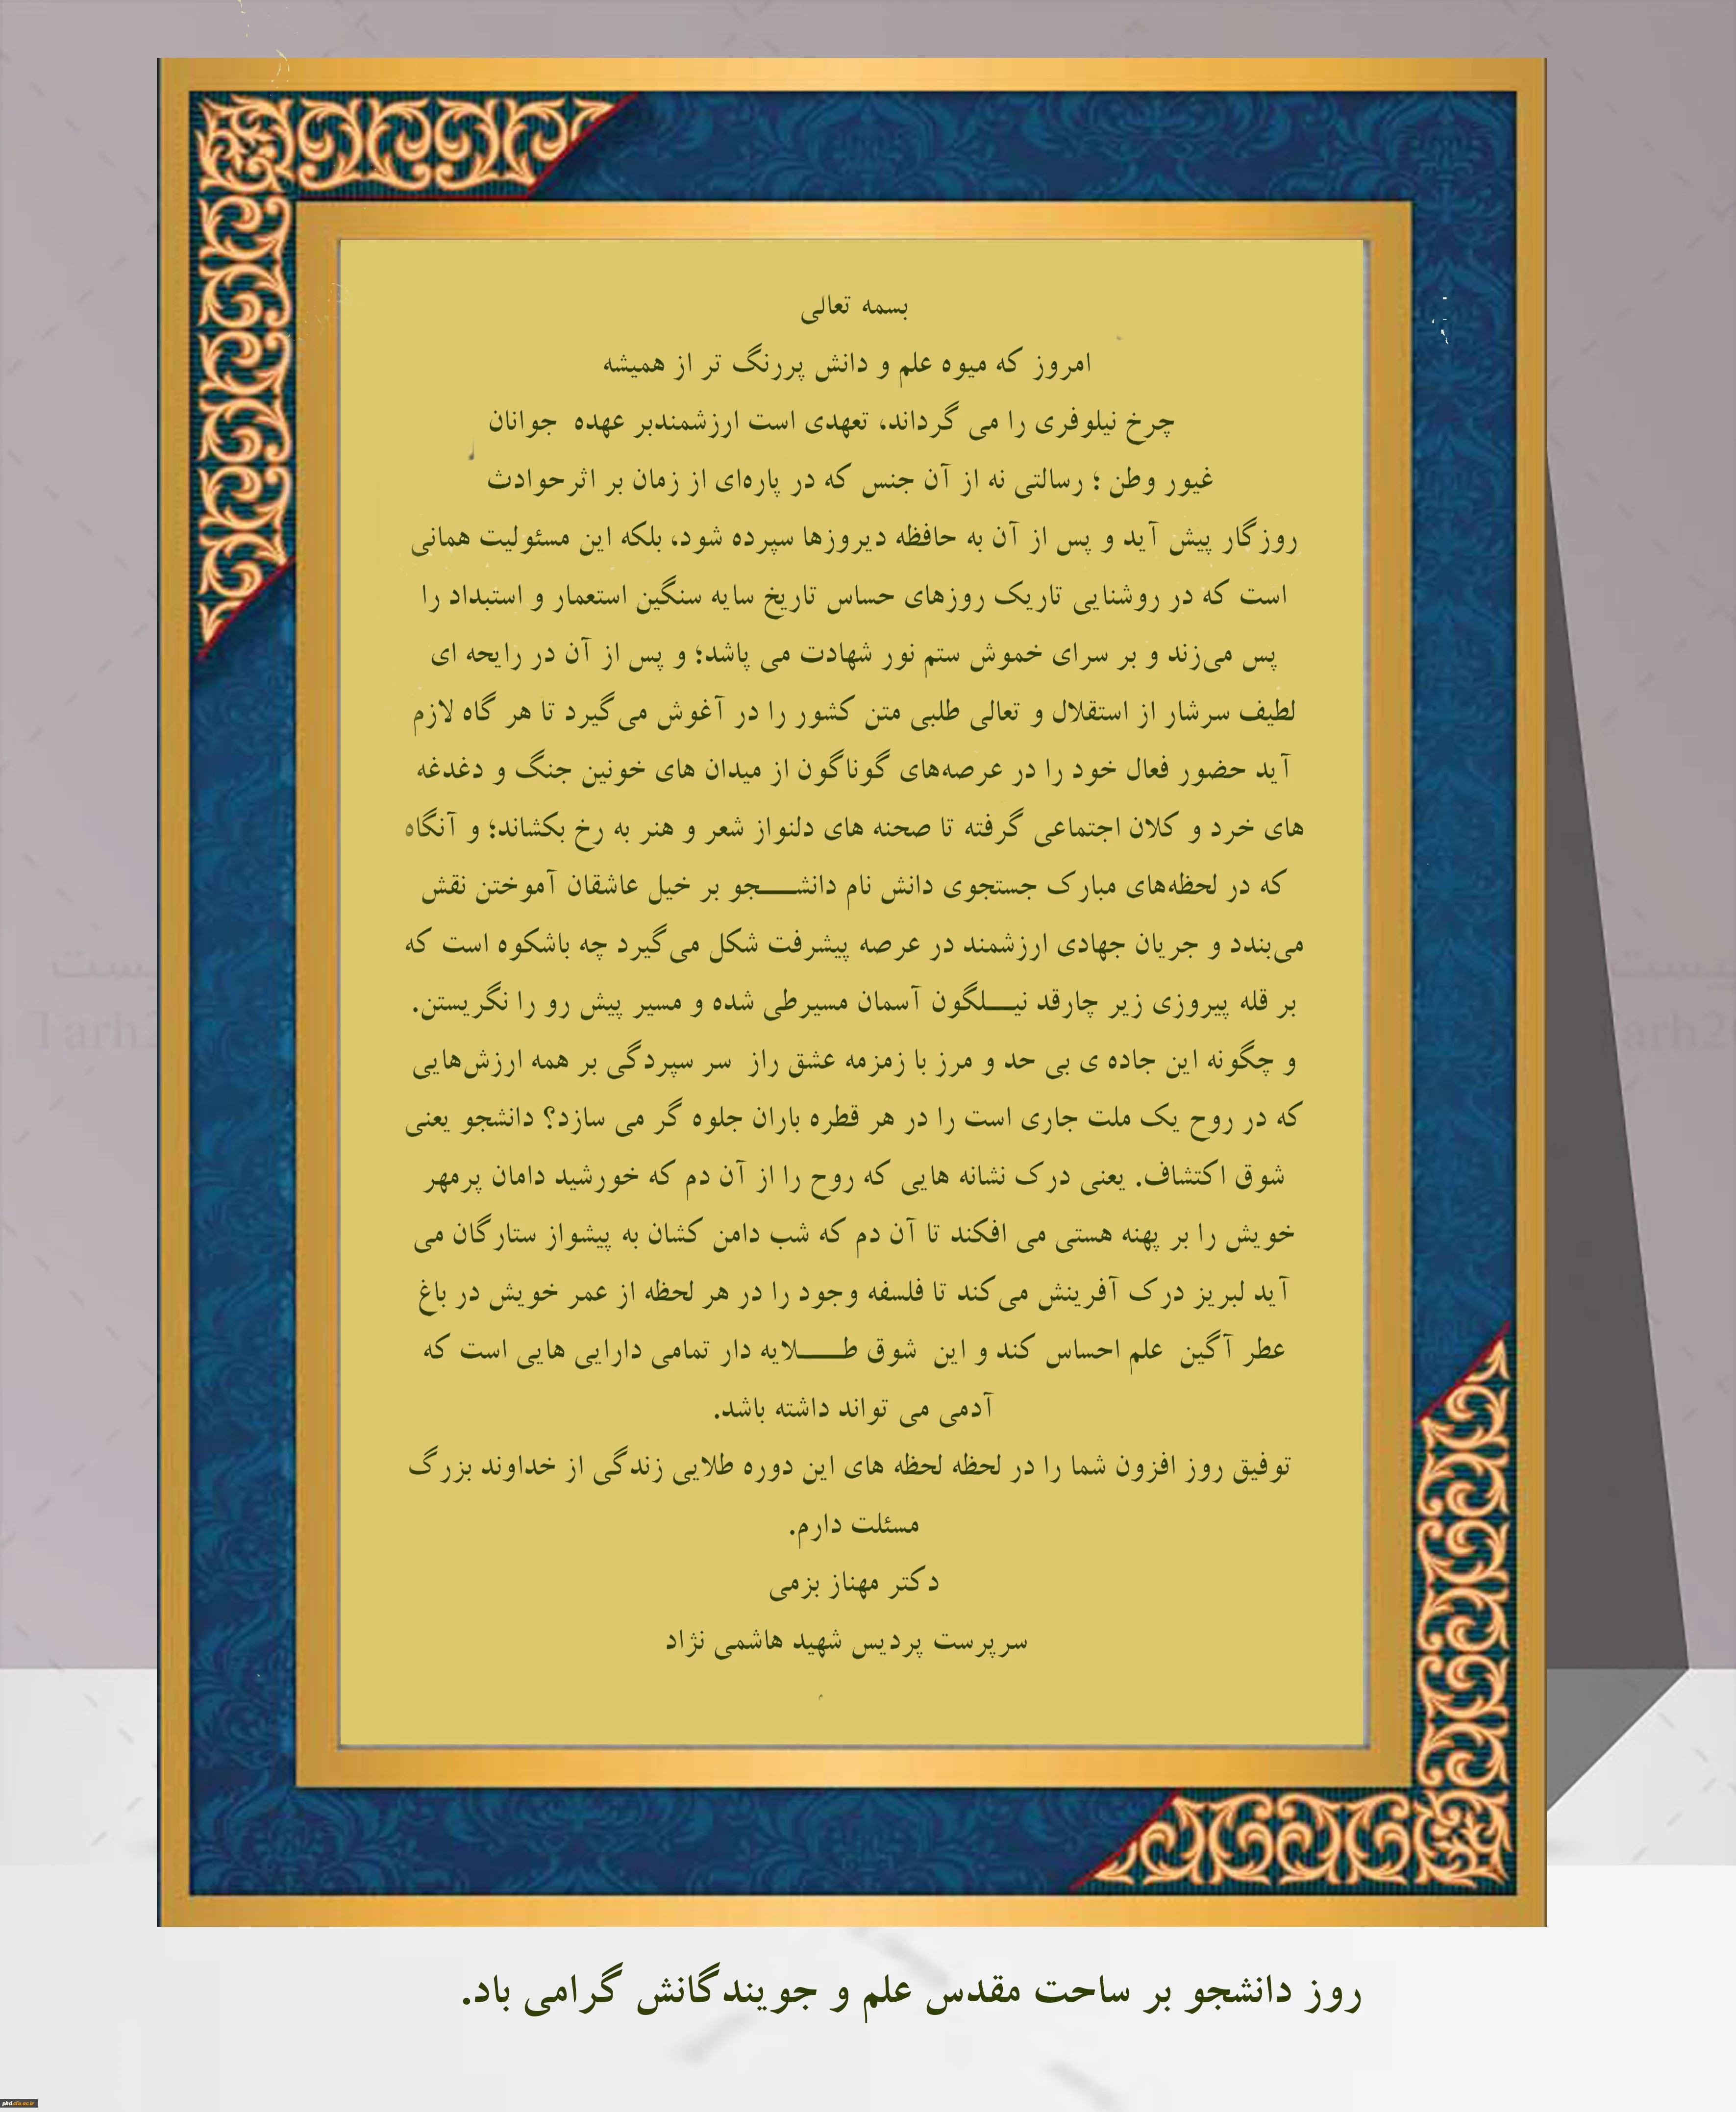 بسمه تعالی
امروز که میوه علم و دانش پررنگ تر از همیشه
چرخ نیلوفری را می گرداند، تعهدی است ارزشمندبر عهده جوانان
غیور وطن ؛ رسالتی نه از آن جنس که در پاره‌ای از زمان بر اثرحوادث
روزگار پیش آید و پس از آن به حافظه دیروزها سپرده شود، بلکه این مسئولیت همانی
است که در روشنایی تاریک روزهای حساس تاریخ سایه سنگین استعمار و استبداد را
پس می‌زند و بر سرای خموش ستم نور شهادت می پاشد؛ و پس از آن در رایحه ای
لطیف سرشار از استقلال و تعالی طلبی متن کشور را در آغوش می‌گیرد تا هر گاه لازم
آید حضور فعال خود را در عرصه‌های گوناگون از میدان های خونین جنگ و دغدغه
های خرد و کلان اجتماعی گرفته تا صحنه های دلنواز شعر و هنر به رخ بکشاند؛ و آنگاه
که در لحظه‌های مبارک جستجوی دانش نام دانشـــــجو بر خیل عاشقان آموختن نقش
می‌بندد و جریان جهادی ارزشمند در عرصه پیشرفت شکل می‌گیرد چه باشکوه است که
بر قله پیروزی زیر چارقد نیـــلگون آسمان مسیرطی شده و مسیر پیش رو را نگریستن.
و چگونه این جاده ی بی حد و مرز با زمزمه عشق راز سر سپردگی بر همه ارزش‌هایی
که در روح یک ملت جاری است را در هر قطره باران جلوه گر می سازد؟ دانشجو یعنی
شوق اکتشاف. یعنی درک نشانه هایی که روح را از آن دم که خورشید دامان پرمهر
خویش را بر پهنه هستی می افکند تا آن دم که شب دامن کشان به پیشواز ستارگان می
آید لبریز درک آفرینش می‌کند تا فلسفه وجود را در هر لحظه از عمر خویش در باغ
عطر آگین علم احساس کند و این شوق طـــــلایه دار تمامی دارایی هایی است که
آدمی می تواند داشته باشد.
توفیق روز افزون شما را در لحظه لحظه های این دوره طلایی زندگی از خداوند بزرگ
مسئلت دارم.
دکتر مهناز بزمی
سرپرست پردیس شهید هاشمی نژاد
روز دانشجو بر ساحت مقدس علم و جویندگانش گرامی باد.